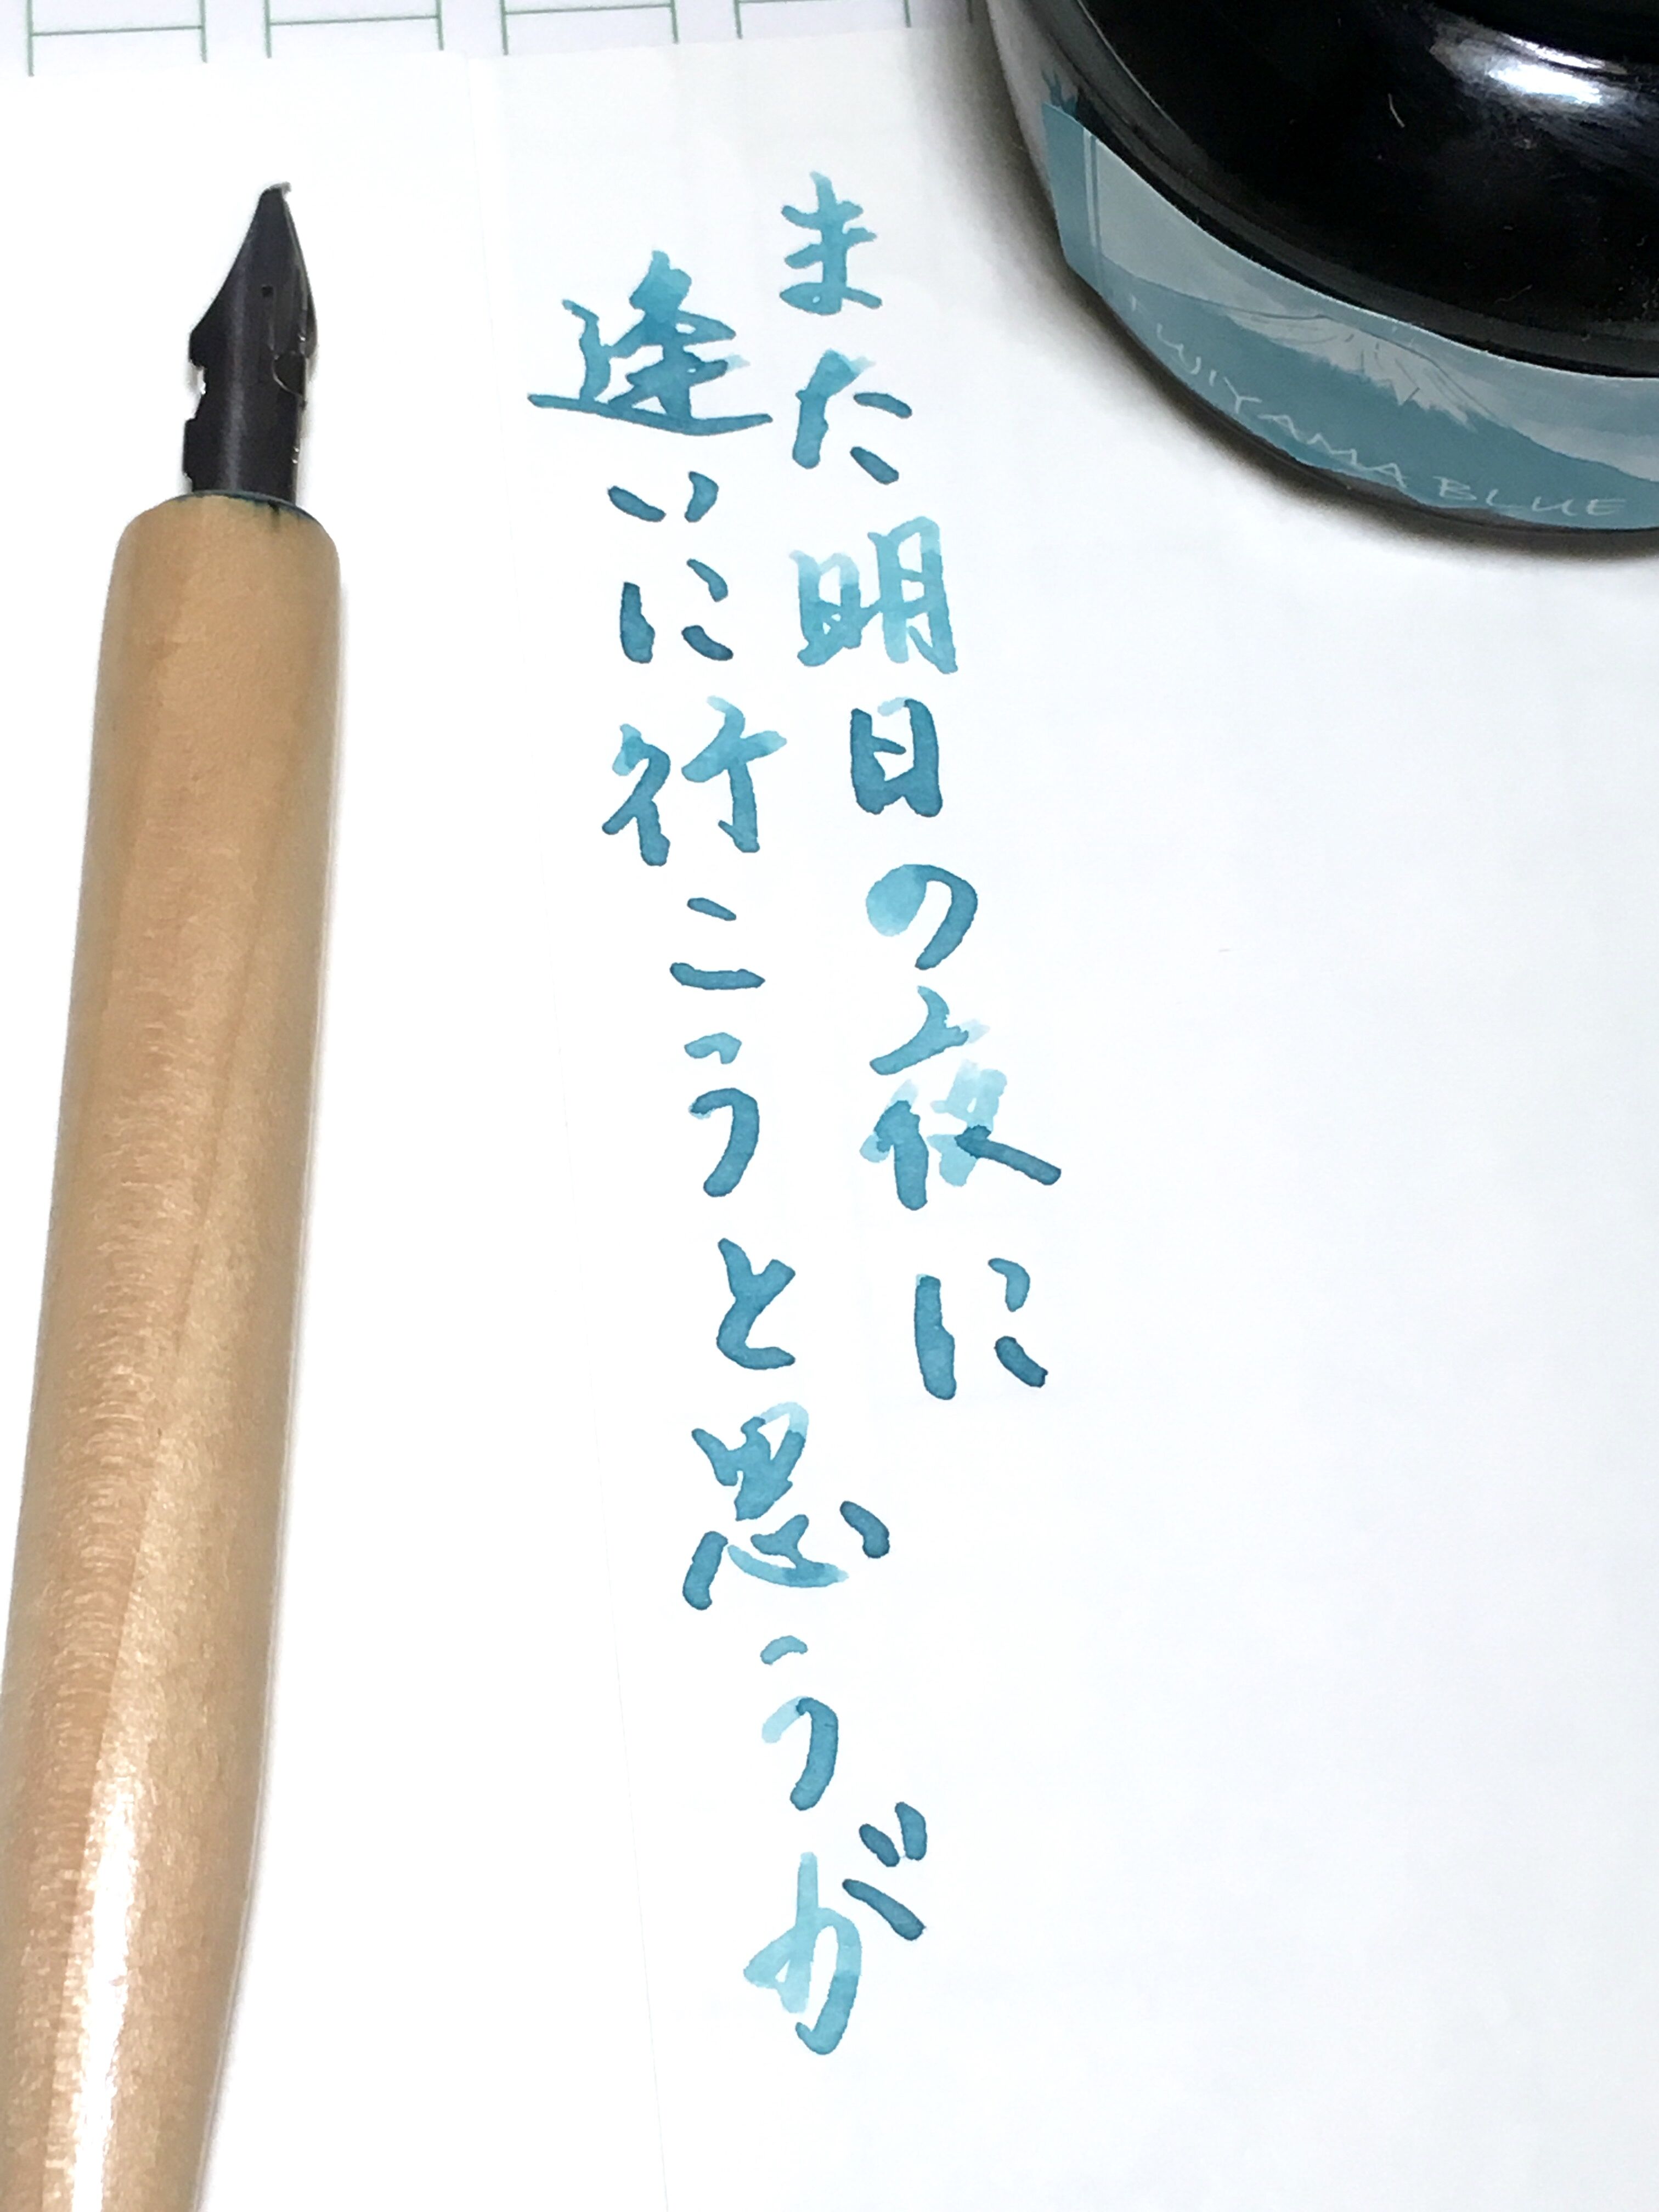 また明日の夜に
逢いに行こうと思うが
FUJIYAMA BLUE